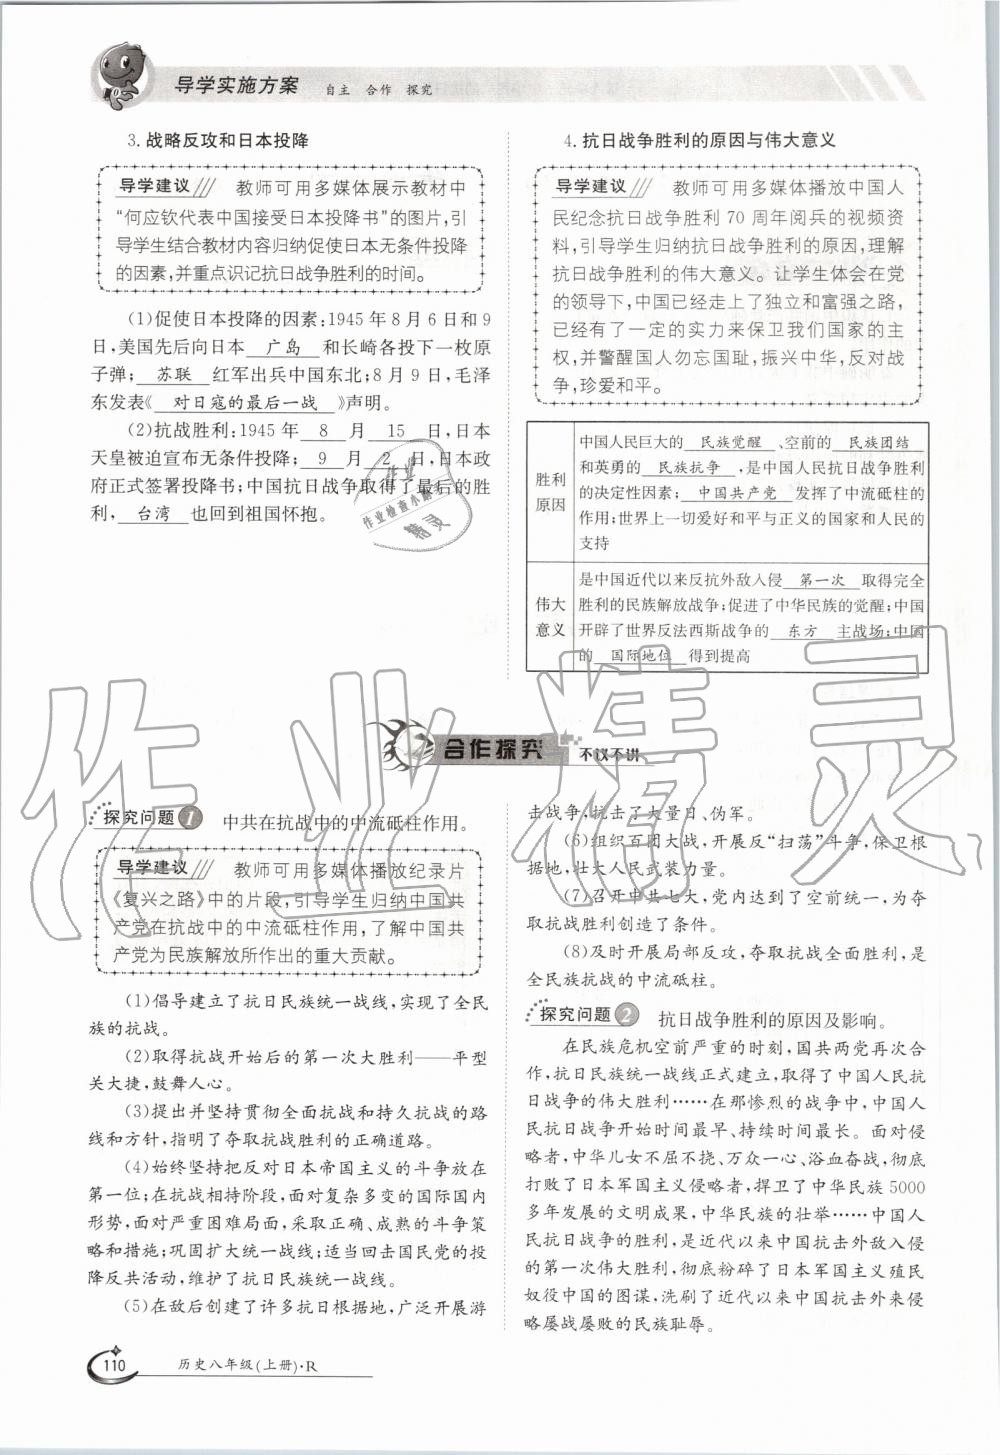 导学实施方案 自主 合作 探究
3. 战略反攻和日本投降
导学建议 教师可用多媒体展示教材中
“何应钦代表中国接受日本投降书”的图片,引
导学生结合教材内容归纳促使日本无条件投降
的因素,并重点识记抗日战争胜利的时间。
(1)促使日本投降的因素:1945 年 8 月 6 日和 9
日,美国先后向日本 广岛 和长崎各投下一枚原
子弹; 苏联 红军出兵中国东北;8 月 9 日,毛泽
东发表《 对日寇的最后一战 》声明。
(2)抗战胜利:1945 年 8 月 15 日,日本
天皇被迫宣布无条件投降; 9 月 2 日,日本政
府正式签署投降书;中国抗日战争取得了最后的胜
利, 台湾 也回到祖国怀抱。
4. 抗日战争胜利的原因与伟大意义
导学建议 教师可用多媒体播放中国人
民纪念抗日战争胜利 70 周年阅兵的视频资
料,引导学生归纳抗日战争胜利的原因,理解
抗日战争胜利的伟大意义。让学生体会在党
的领导下,中国已经走上了独立和富强之路,
已经有了一定的实力来保卫我们国家的主
权,并警醒国人勿忘国耻,振兴中华,反对战
争,珍爱和平。
胜利
原因
中国人民巨大的 民族觉醒 、空前的 民族团结
和英勇的 民族抗争 ,是中国人民抗日战争胜利
的决定性因素; 中国共产党 发挥了中流砥柱的
作用;世界上一切爱好和平与正义的国家和人民的
支持
伟大
意义
是中国近代以来反抗外敌入侵 第一次 取得完全
胜利的民族解放战争;促进了中华民族的觉醒;中国
开辟了世界反法西斯战争的 东方 主战场;中国
的 国际地位 得到提高
合作探究 不议不讲
探究问题 1 中共在抗战中的中流砥柱作用。
导学建议 教师可用多媒体播放纪录片
《复兴之路》中的片段,引导学生归纳中国共
产党在抗战中的中流砥柱作用,了解中国共
产党为民族解放所作出的重大贡献。
(1)倡导建立了抗日民族统一战线,实现了全民
族的抗战。
(2)取得抗战开始后的第一次大胜利——平型
关大捷,鼓舞人心。
(3)提出并坚持贯彻全面抗战和持久抗战的路
线和方针,指明了夺取抗战胜利的正确道路。
(4)始终坚持把反对日本帝国主义的斗争放在
第一位;在抗战相持阶段,面对复杂多变的国际国内
形势,面对严重困难局面,采取正确、成熟的斗争策
略和措施;巩固扩大统一战线;适当回击国民党的投
降反共活动,维护了抗日民族统一战线。
(5)在敌后创建了许多抗日根据地,广泛开展游
击战争,抗击了大量日、伪军。
(6)组织百团大战,开展反“扫荡”斗争,保卫根
据地,壮大人民武装力量。
(7)召开中共七大,党内达到了空前统一,为夺
取抗战胜利创造了条件。
(8)及时开展局部反攻,夺取抗战全面胜利,是
全民族抗战的中流砥柱。
探究问题 2 抗日战争胜利的原因及影响。
在民族危机空前严重的时刻,国共两党再次合
作,抗日民族统一战线正式建立,取得了中国人民抗
日战争的伟大胜利……在那惨烈的战争中,中国人
民抗日战争开始时间最早、持续时间最长。面对侵
略者,中华儿女不屈不挠、万众一心、浴血奋战,彻底
打败了日本军国主义侵略者,捍卫了中华民族 5000
多年发展的文明成果,中华民族的壮举……中国人
民抗日战争的胜利,是近代以来中国抗击外敌入侵
的第一次伟大胜利,彻底粉碎了日本军国主义殖民
奴役中国的图谋,洗刷了近代以来中国抗击外来侵
略屡战屡败的民族耻辱。
110 历史八年级(上册)·R
作业精灵